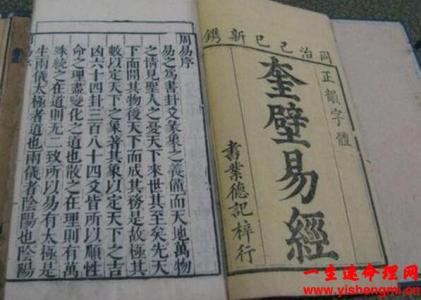 同治己巳新鐫
正韻字體
奎壁易經
書業德記梓行
周易序
易之為書卦爻彖象之義備而天地萬物
之情見聖人之憂天下來世其至矣先天
下而開其物後天下而成其務是故極其
數以定天下之象著其象以定天下之吉
凶六十四卦三百八十四爻皆所以順性
命之理盡變化之道也散之在理則有萬
殊統之在道則无二致所以易有太極是
生兩儀太極者道也兩儀者陰陽也陰陽
一生迷命理网
www.yishengmi.cn